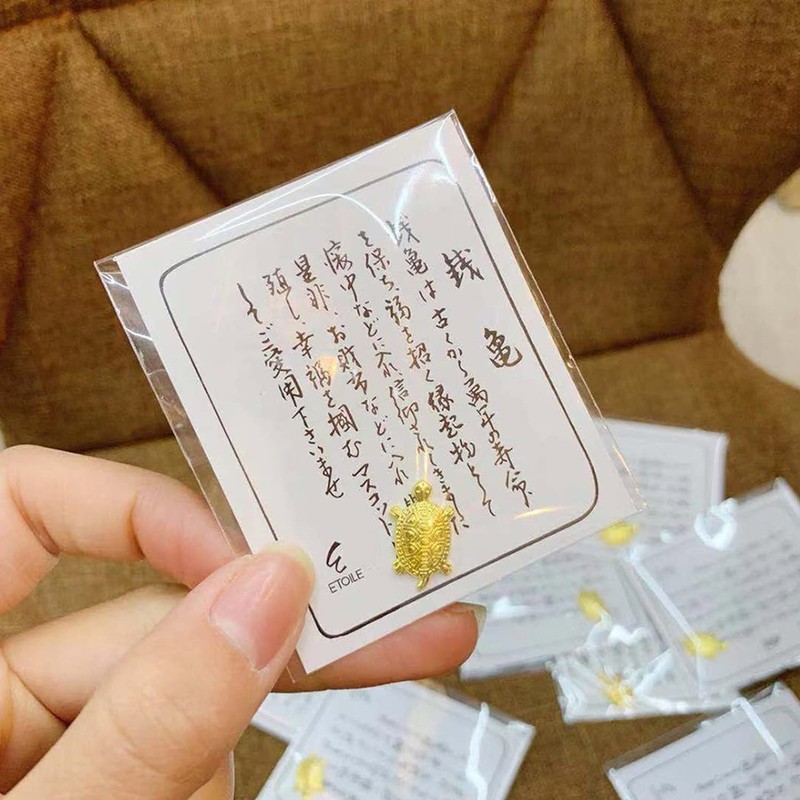 銭亀
銭亀は古くから萬年の寿命
を保ち福を招く縁起物として
懐中などに入れ信仰されてきました
是非、お財布などに入れ
殖し、幸福を掴むマスコット
としてご愛用下さいませ
ETOILE